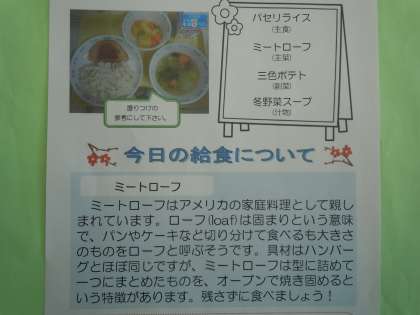 パセリライス
(主食)
ミートローフ
(主菜)
三色ポテト
(副菜)
冬野菜スープ
(汁物)
盛りつけの
参考にして下さい。
今日の給食について
ミートローフ
ミートローフはアメリカの家庭料理として親し
まれています。ローフ(loaf)は固まりという意味
で、パンやケーキなど切り分けて食べる大きさ
のものをローフと呼ぶそうです。具材はハンバー
グとほぼ同じですが、ミートローフは型に詰めて
一つにまとめたものを、オーブンで焼き固めると
いう特徴があります。残さずに食べましょう！